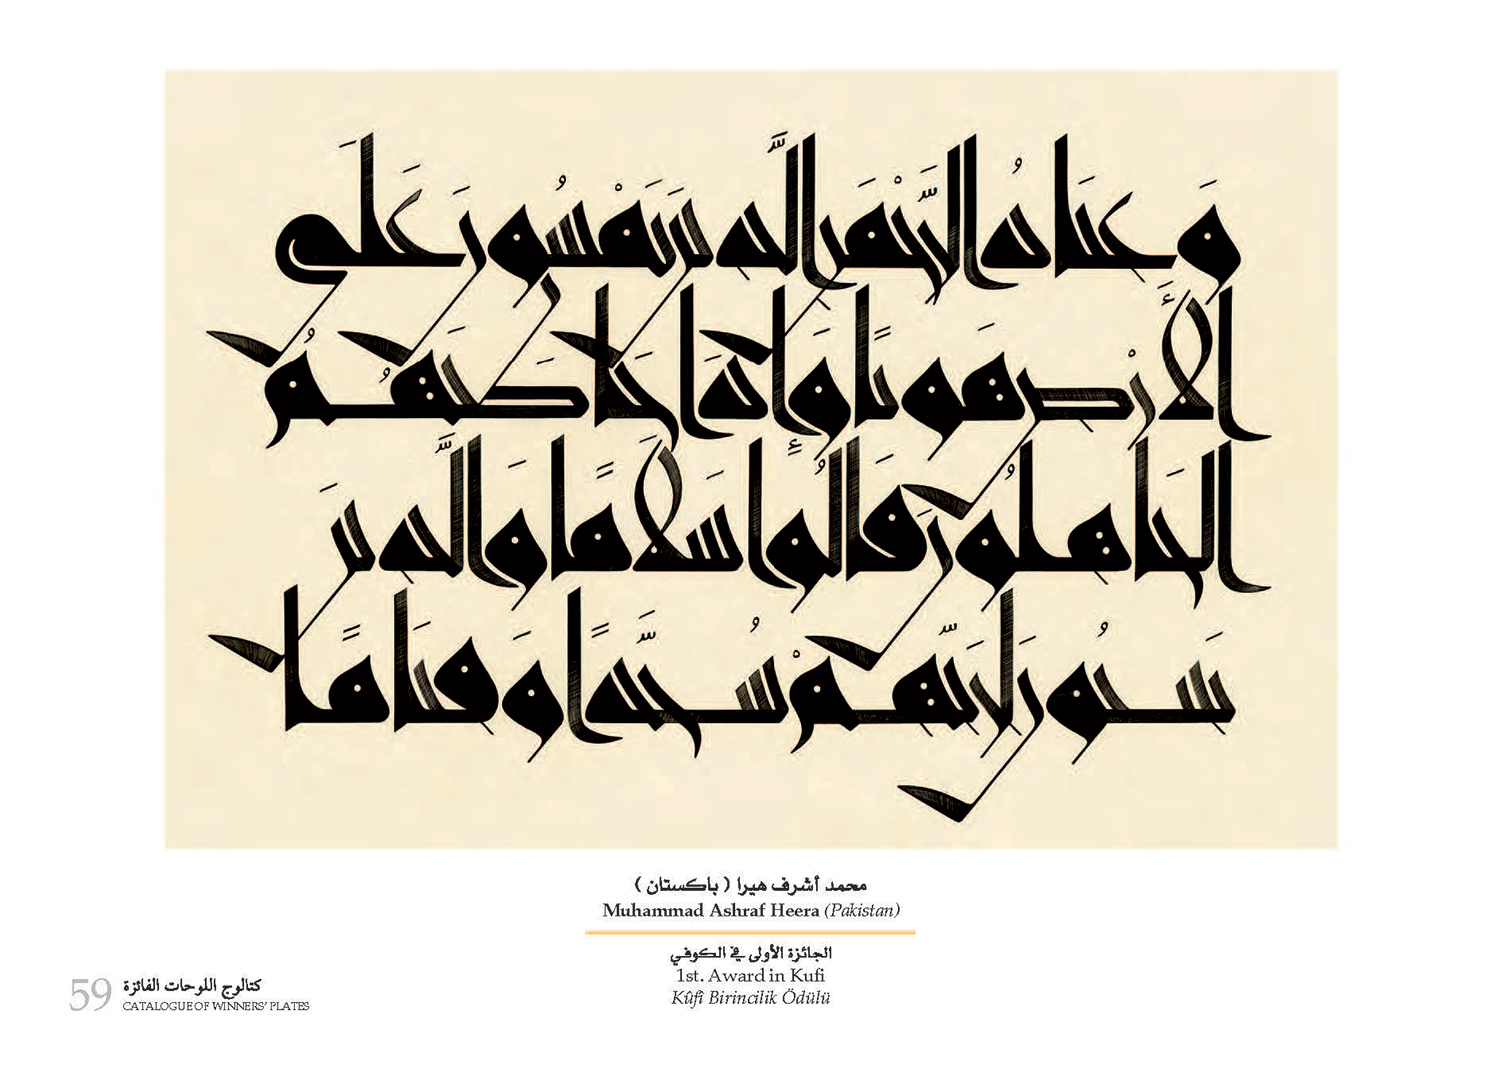 وَعِبَادُ الرَّحْمَنِ الَّذِينَ يَمْشُونَ عَلَى
الْأَرْضِ هَوْنًا وَإِذَا خَاطَبَهُمُ
الْجَاهِلُونَ قَالُوا سَلَامًا وَالَّذِينَ
يَبِيتُونَ لِرَبِّهِمْ سُجَّدًا وَقِيَامًا
محمد أشرف هيرا ( باكستان )
Muhammad Ashraf Heera (Pakistan)
الجائزة الأولى في الكوفي
1st. Award in Kufi
Kûfî Birincilik Ödülü
59 كتالوج اللوحات الفائزة
CATALOGUE OF WINNERS' PLATES